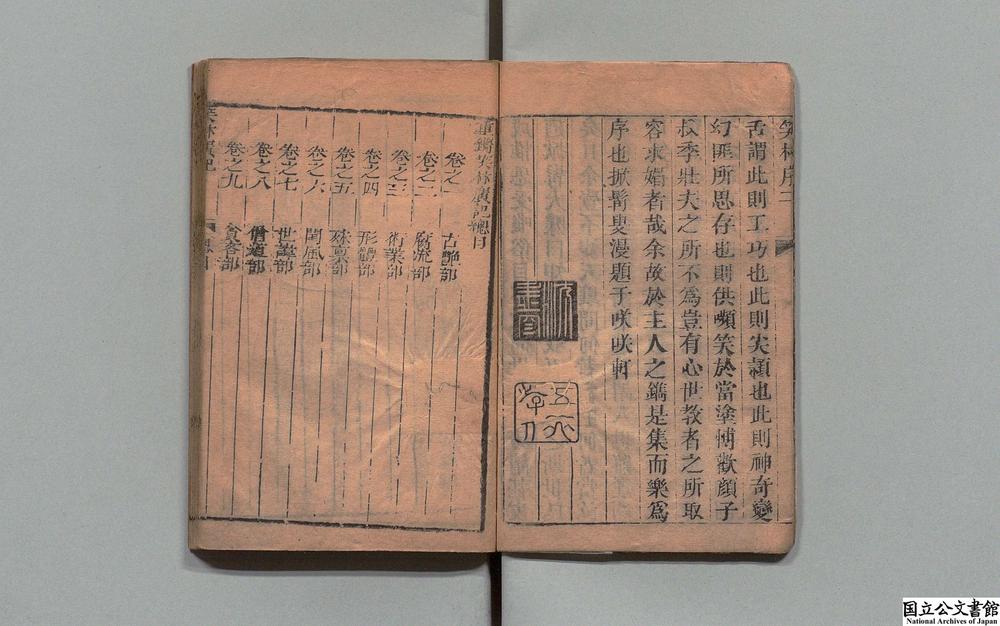 笑林序 二
舌謂此則工巧也此則尖穎也此則神奇變
幻匪所思存也則供嚬笑於當塗博歡顔子
叔季壯夫之所不爲豈有心世敎者之所取
容求媚者哉余故於主人之鐫是集而樂爲
序也掀髯叟漫題于咲咲軒
重鐫笑林廣記總目
卷之一 古艶部
卷之二 腐流部
卷之三 術業部
卷之四 形體部
卷之五 殊稟部
卷之六 閨風部
卷之七 世諱部
卷之八 僧道部
卷之九 貪吝部
笑林廣記 總目
国立公文書館
National Archives of Japan